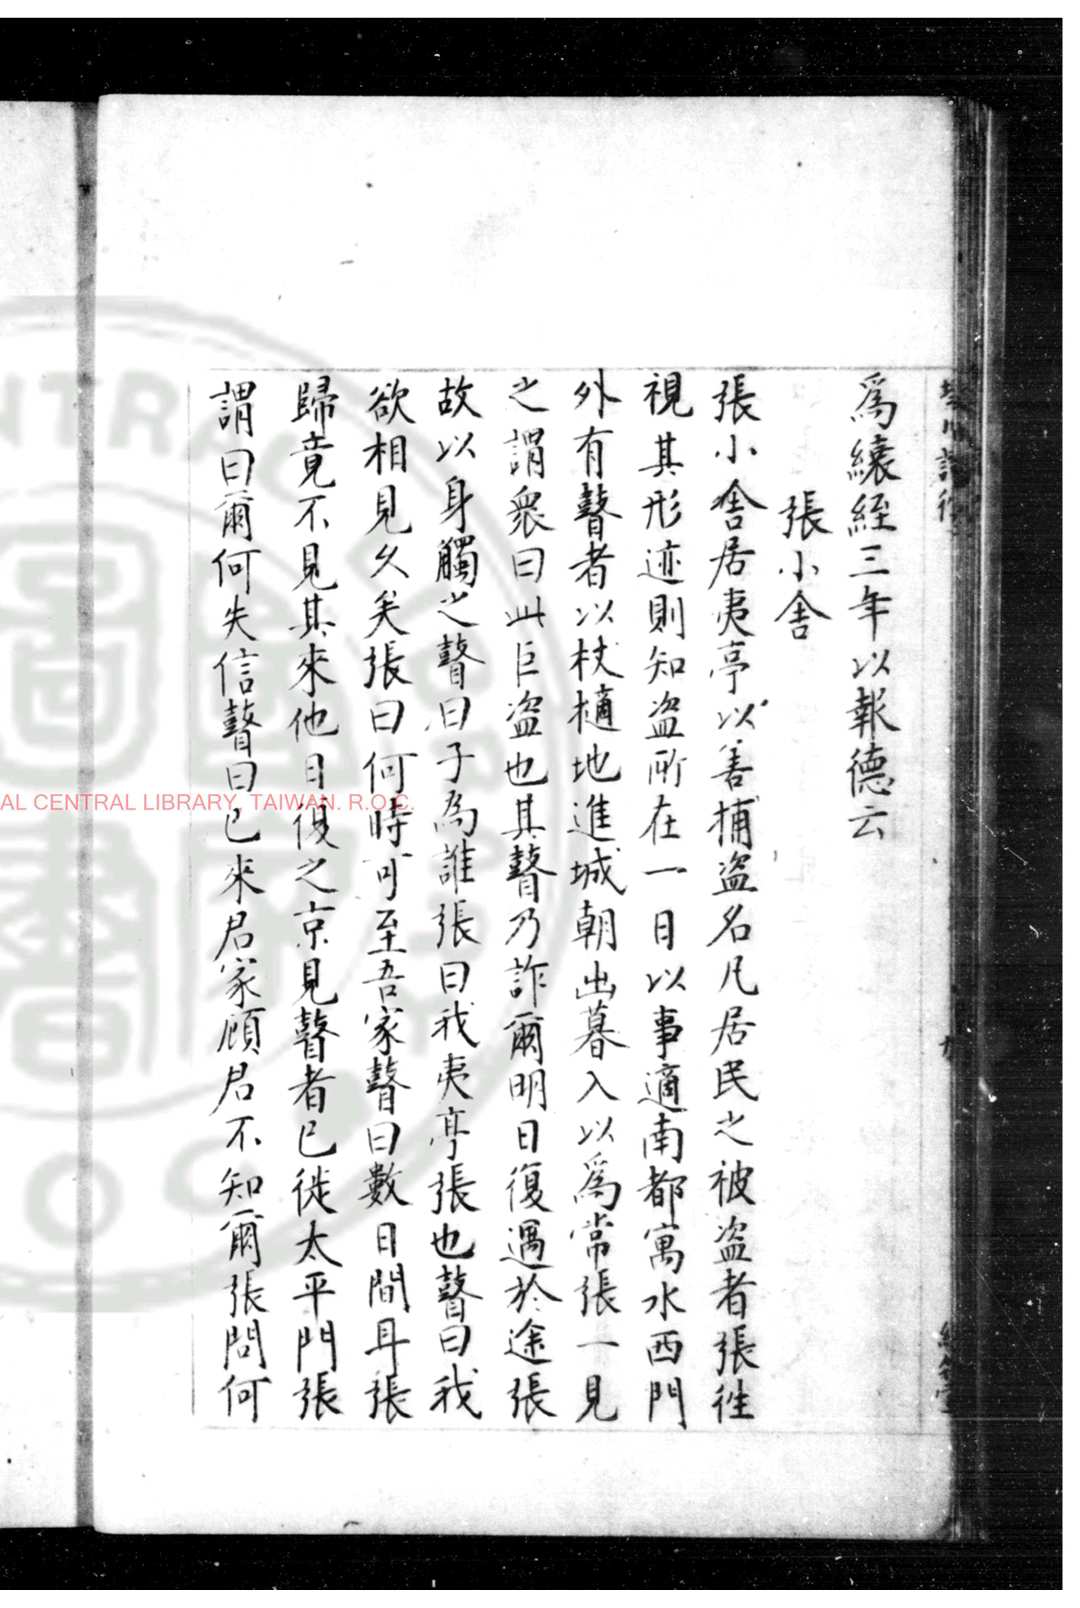 爲纕絰三年以報德云
張小舎
張小舎居夷亭以善捕盗名凡居民之被盗者張徃
視其形迹則知盗所在一日以事適南都寓水西門
外有瞽者以杖擿地進城朝出暮入以爲常張一見
之謂衆曰此巨盗也其瞽乃詐爾明日復遇於途張
故以身觸之瞽曰子為誰張曰我夷亭張也瞽曰我
欲相見久矣張曰何時可至吾家瞽曰數日間耳張
歸竟不見其來他日復之京見瞽者已徙太平門張
謂曰爾何失信瞽曰已來君家顧君不知爾張問何
AL CENTRAL LIBRARY, TAIWAN. R.O.C.